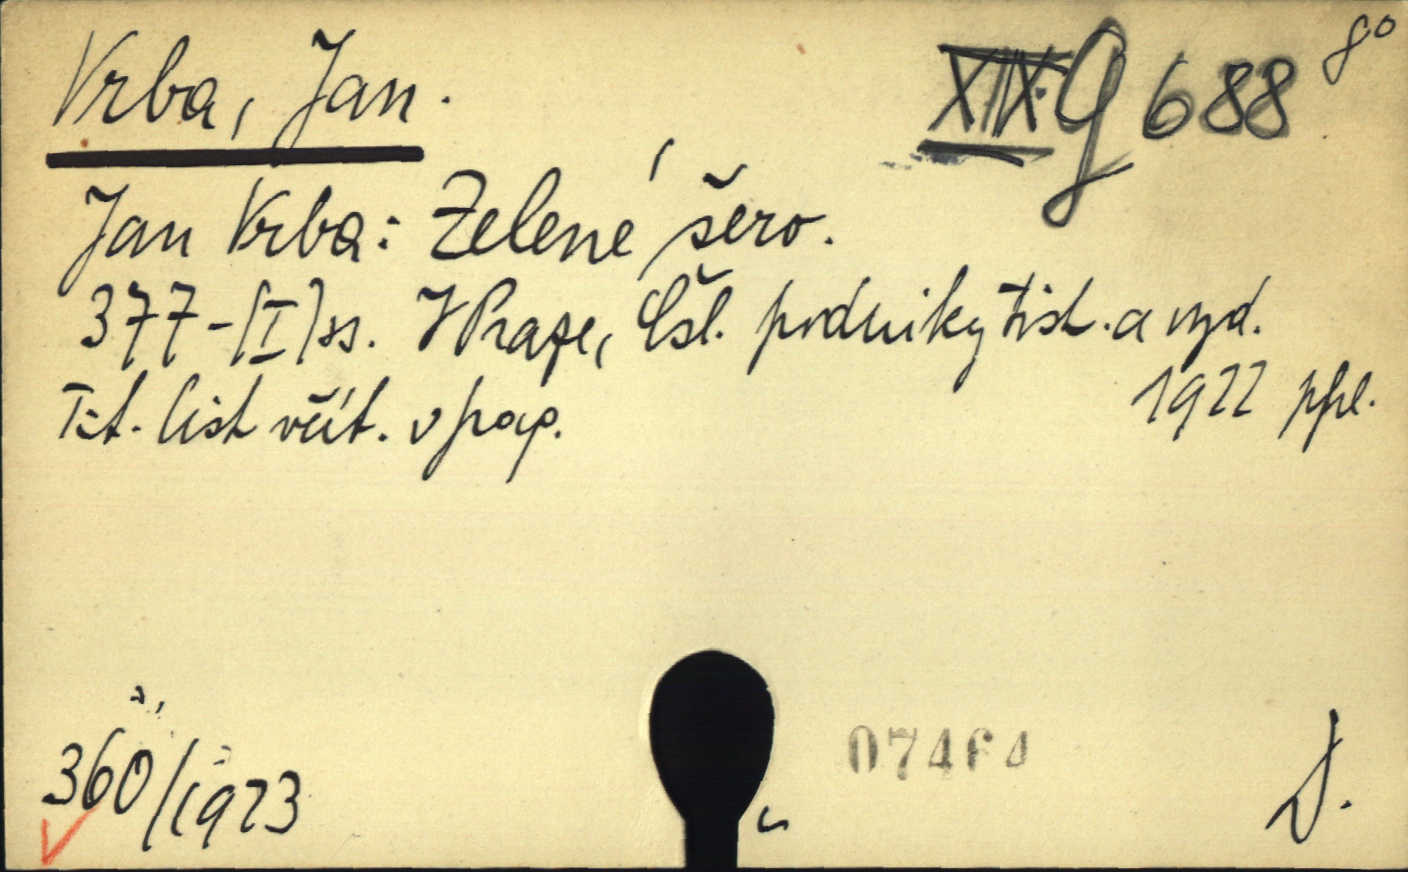 Vrba, Jan.
XIX G 688 8°
Jan Vrba: Zelené šero.
377-[I] ss. V Praze, Čsl. podniky tisk. a vyd.
1922 ppl.
Tit. list včít. v pag.
360/1923
D.